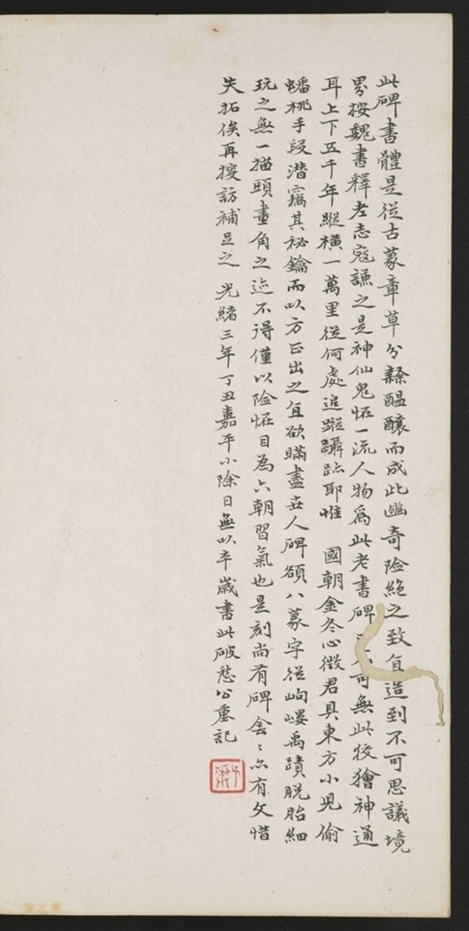 此碑書體是從古篆章草分隸醞釀而成此幽奇險絕之致自造到不可思議境
界按魏書釋老志寇謙之是神仙鬼怪一流人物為此老書碑可無此狡獪神通
耳上下五千年縱橫一萬里從何處追蹤躡跡耶惟 國朝金冬心徵君具東方小兒偷
蟠桃手段潛竊其祕鑰而以方正出之直欲瞞盡世人碑額八篆字從岣嶁禹蹟脫胎細
玩之無一猫頭畫角之迹不得僅以險怪目為六朝習氣也是刻尚有碑侌侌亦有文惜
失拓俟再搜訪補足之 光緒三年丁丑嘉平小除日無以卒歲書此破愁公重記